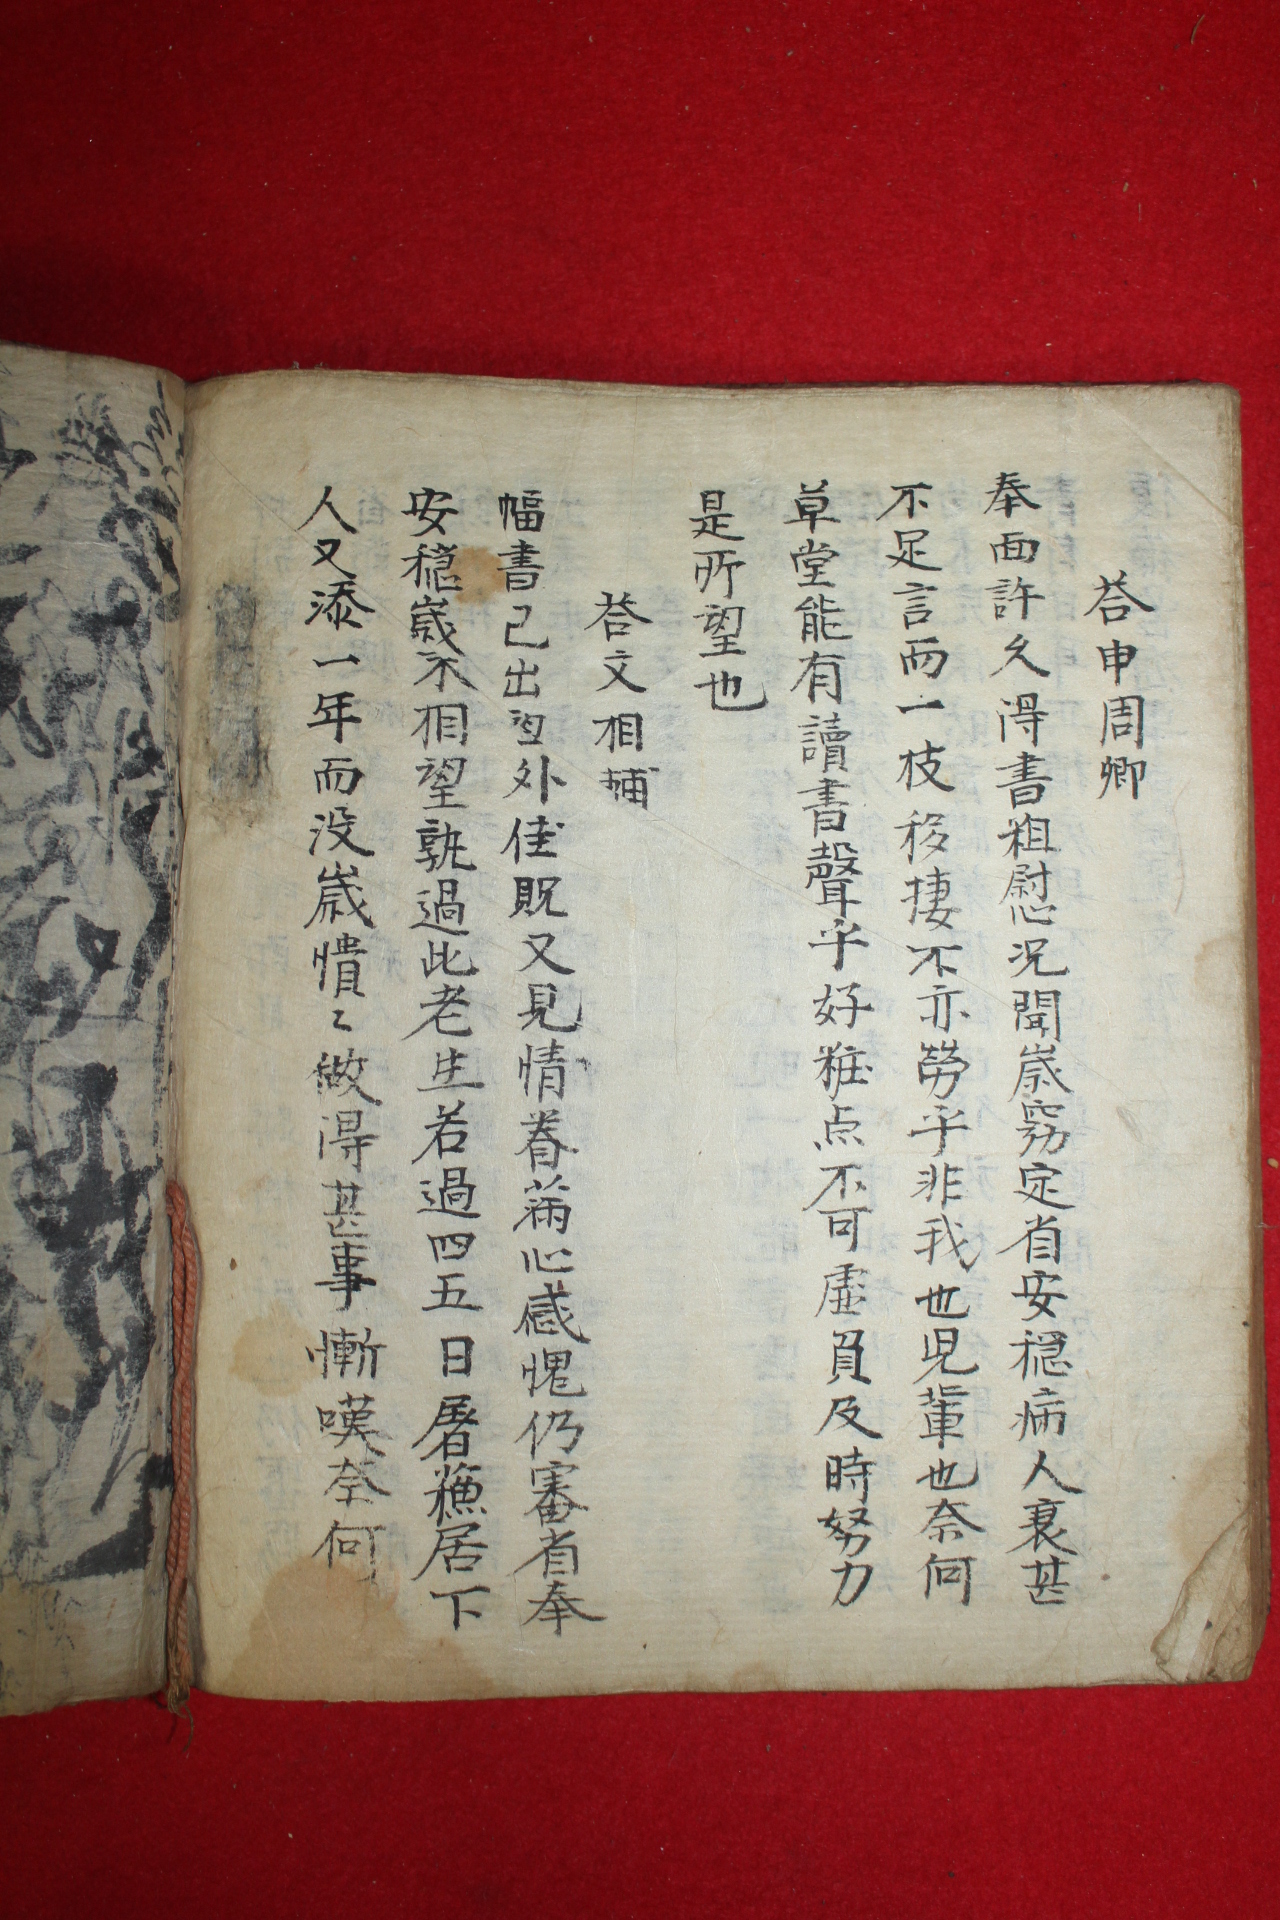 答申周卿
奉面許久得書粗慰況聞歲窮定省安穩病人衰甚
不足言而一枝移捿不亦勞乎非我也児輩也奈何
草堂能有讀書聲乎好粧点不可虛負及時努力
是所望也
答文相輔
幅書已出望外佳貺又見情眷滿心感愧仍審省奉
安穩歲不相望孰過此老生若過四五日屠蘓居下
人又添一年而没歲憒〻做得甚事慚嘆奈何